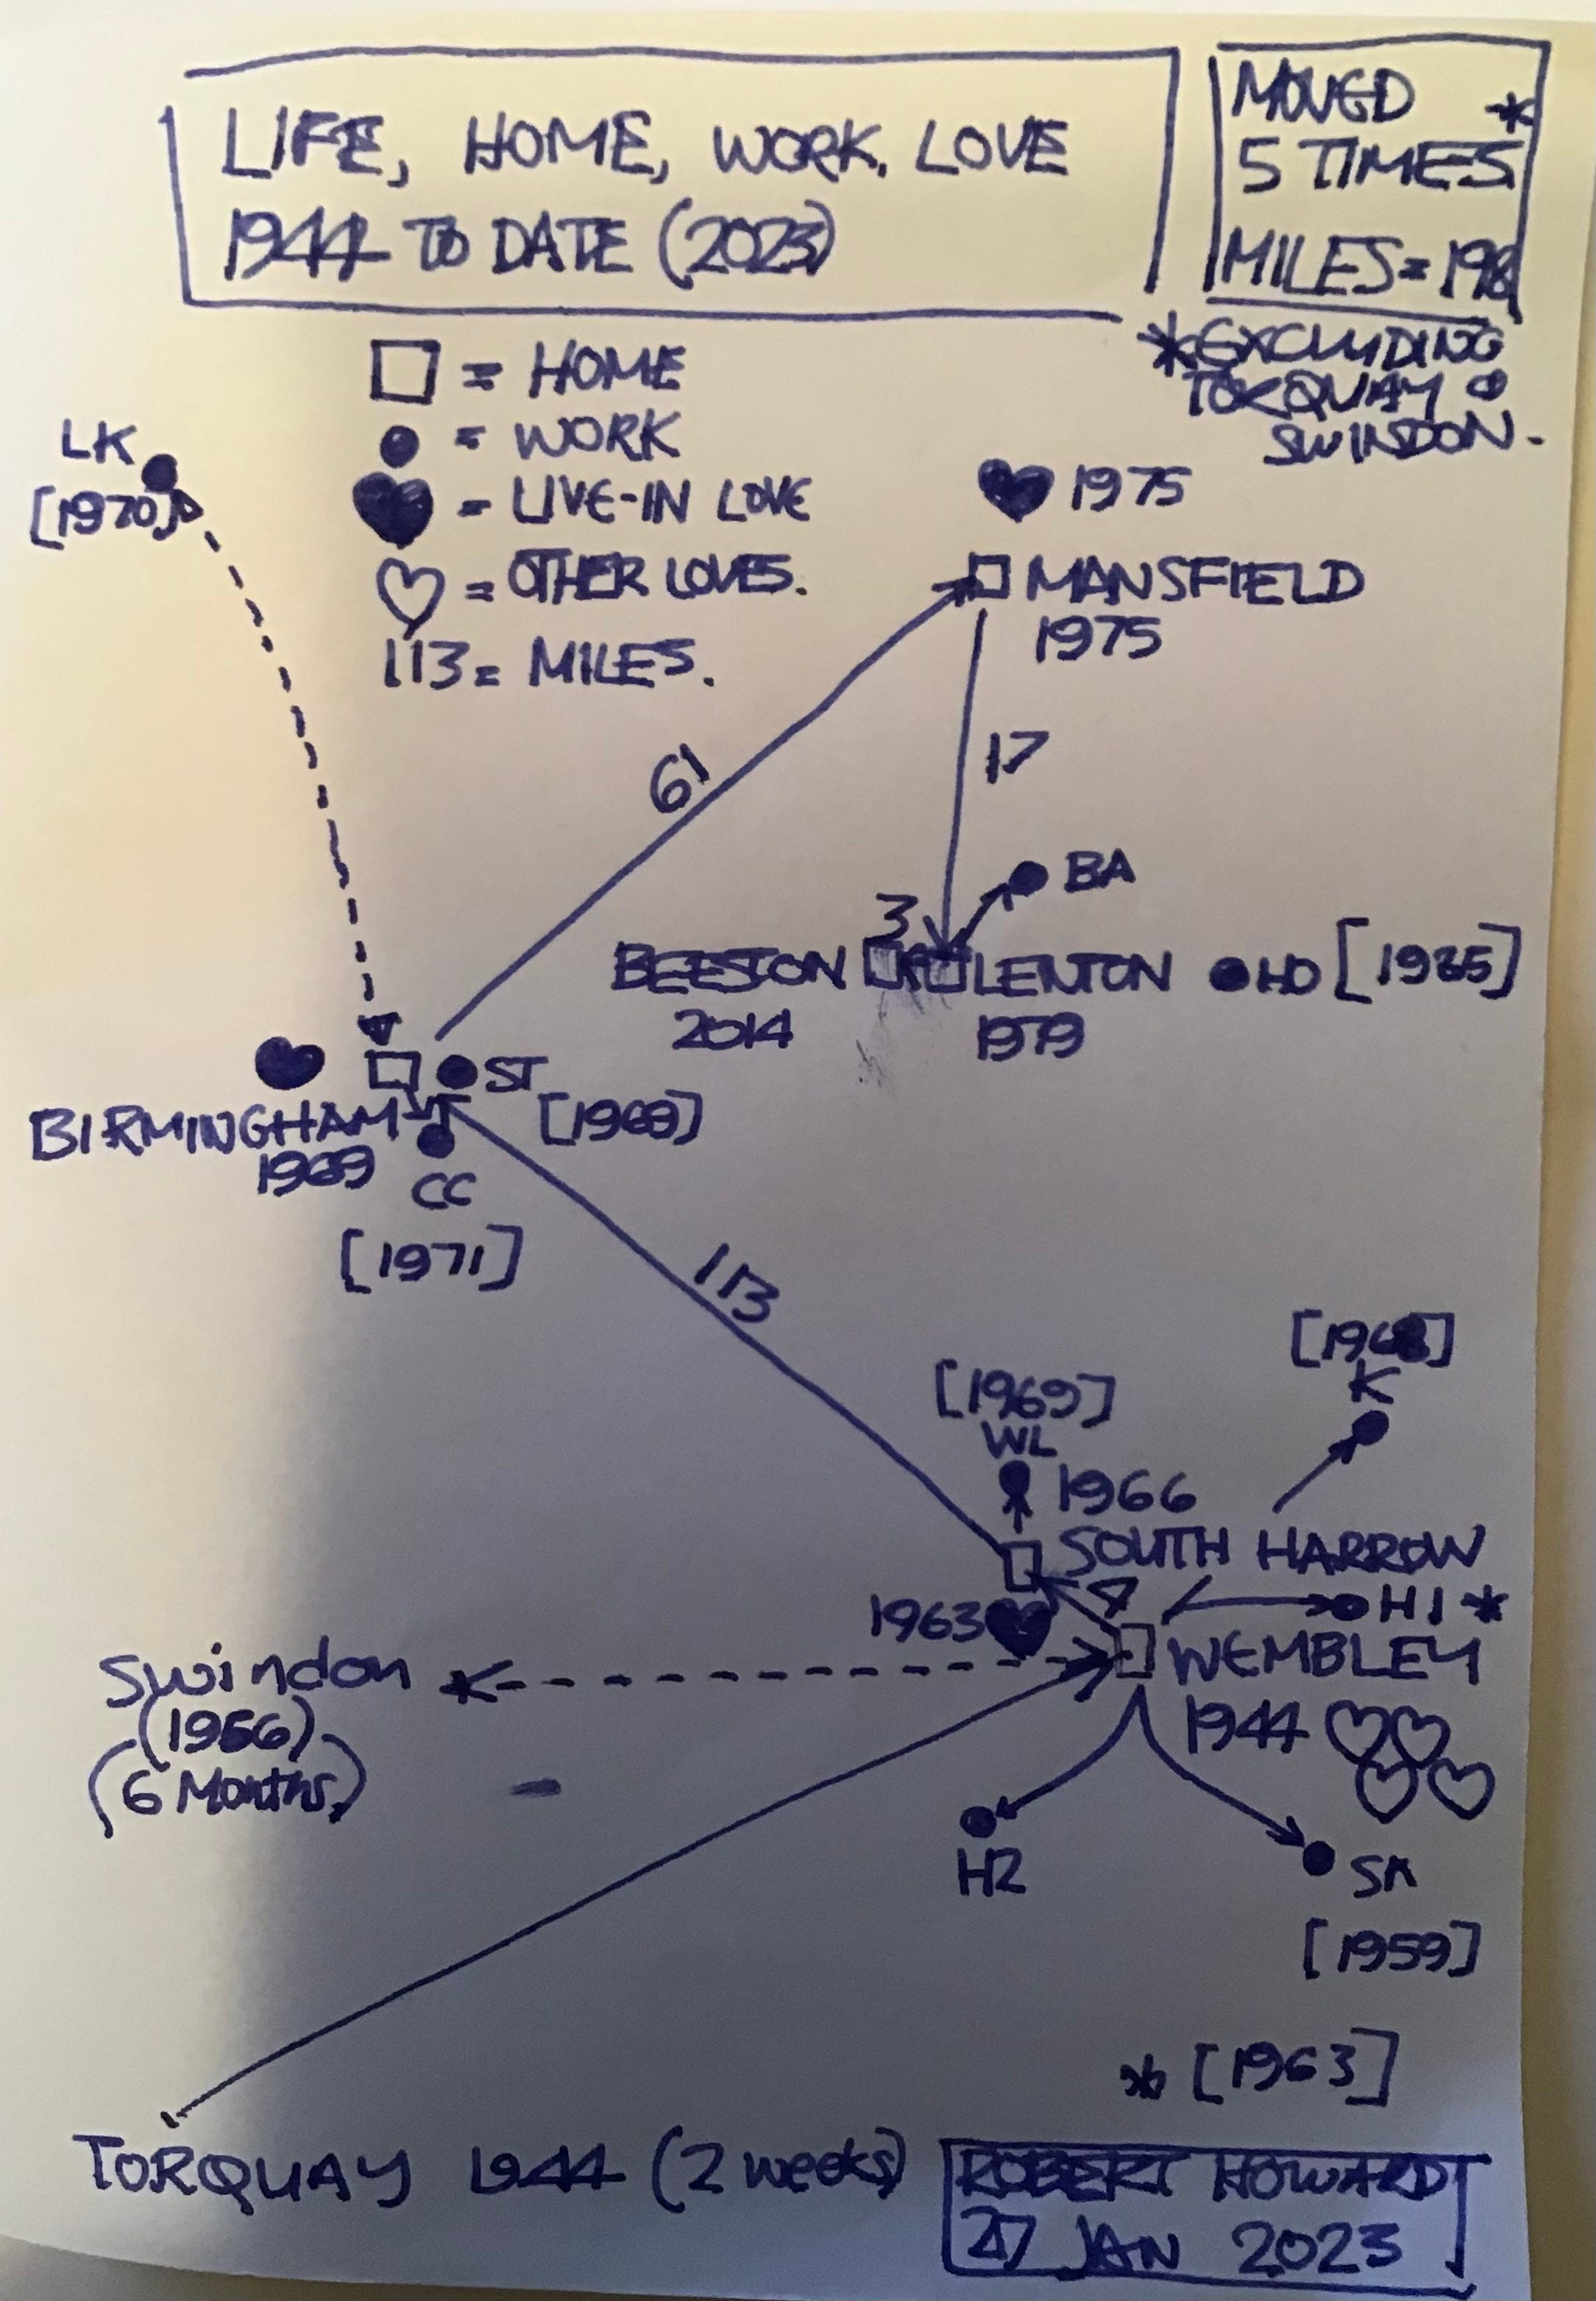 LIFE, HOME, WORK, LOVE
1944 TO DATE (2023)
MOVED *
5 TIMES
MILES = 198
* EXCLUDING
TORQUAY &
SWINDON.
= HOME
= WORK
= LIVE-IN LOVE
= OTHER LOVES.
113 = MILES.
LK
[1970]
1975
MANSFIELD
1975
61
17
BA
3
BEESTON
2014
LENTON
1979
HO [1985]
ST
[1969]
BIRMINGHAM
1969
CC
[1971]
113
[1968]
K
[1969]
WL
1966
SOUTH HARROW
4
H1 *
1963
WEMBLEY
1944
Swindon
(1956)
(6 Months)
H2
SM
[1959]
* [1963]
TORQUAY 1944 (2 weeks)
ROBERT HOWARD
27 JAN 2023